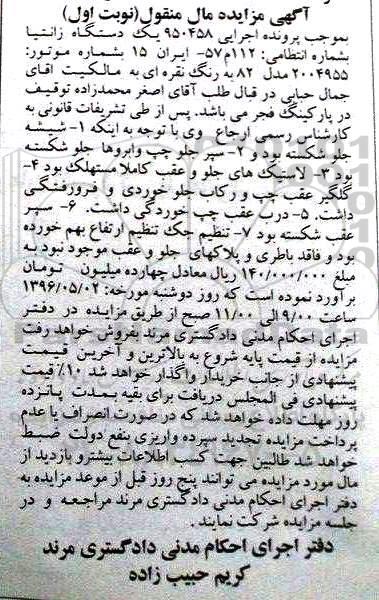 آگهی مزایده مال منقول(نوبت اول)
بموجب پرونده اجرایی ۹۵۰۴۵۸ یک دستگاه زانتیا
بشماره انتظامی: ۱۱۲م۵۷- ایران ۱۵ بشماره موتور:
۲۰۰۴۹۵۵ مدل ۸۲ به رنگ نقره ای به مالکیت اقای
جمال حبابی در قبال طلب آقای اصغر محمدزاده توقیف
در پارکینگ فجر می باشد. پس از طی تشریفات قانونی به
کارشناس رسمی ارجاع وی با توجه به اینکه ۱- شیشه
جلو شکسته بود و ۲- سپر جلو چپ وابروها جلو شکسته
بود ۳- لاستیک های جلو و عقب کاملا مستهلک بود ۴-
گلگیر عقب چپ و رکاب جلو خوردی و فرورفتگی
داشت. ۵- درب عقب چپ خوردگی داشت. ۶- سپر
عقب شکسته بود ۷- تنظیم جک تنظیم ارتفاع بهم خورده
بود و فاقد باطری و پلاکهای جلو و عقب موجود نبود به
مبلغ ۱۴۰/۰۰۰/۰۰۰ ریال معادل چهارده میلیون تومان
برآورد نموده است که روز دوشنبه مورخه: ۱۳۹۶/۰۵/۰۲
ساعت ۹/۰۰ الی ۱۱/۰۰ صبح از طریق مزایده در دفتر
اجرای احکام مدنی دادگستری مرند بفروش خواهد رفت
مزایده از قیمت پایه شروع به بالاترین و آخرین قیمت
پیشنهادی از جانب خریدار واگذار خواهد شد ۱۰٪ قیمت
پیشنهادی فی المجلس دریافت برای بقیه بمدت پانزده
روز مهلت داده خواهد شد که در صورت انصراف یا عدم
پرداخت مزایده تجدید سپرده واریزی بنفع دولت ضبط
خواهد شد طالبین جهت کسب اطلاعات بیشترو بازدید از
مال مورد مزایده می توانند پنج روز قبل از موعد مزایده به
دفتر اجرای احکام مدنی دادگستری مرند مراجعه و در
جلسه مزایده شرکت نمایند.
دفتر اجرای احکام مدنی دادگستری مرند
کریم حبیب زاده